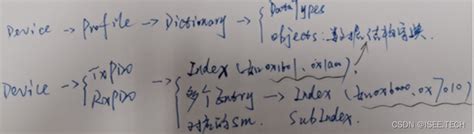 Device → Profile → Dictionary → { DataTypes
objects: 数据结构字典.
Device → { TxPDO
RxPDO → { Index (如0x1601, 0x1a00)
每个Entry → Index (如0x6000, 0x7010)
对应的sm. SubIndex.
CSDN @iSEE.TECH